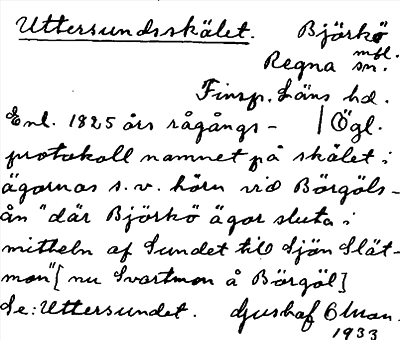 Uttersundsskälet. Björkö
mfl.
Regna sn.
Finsp. Läns hd.
Enl. 1825 års rågångs- | Ögl.
protokoll namnet på skälet i
ägornas s.v. hörn vid Börgöls-
ån "där Björkö ägor sluta i
mitteln af Sundet till Sjön Slät-
mon" [nu Svartmon å Börgöl]
Se: Uttersundet. Gustaf
1933